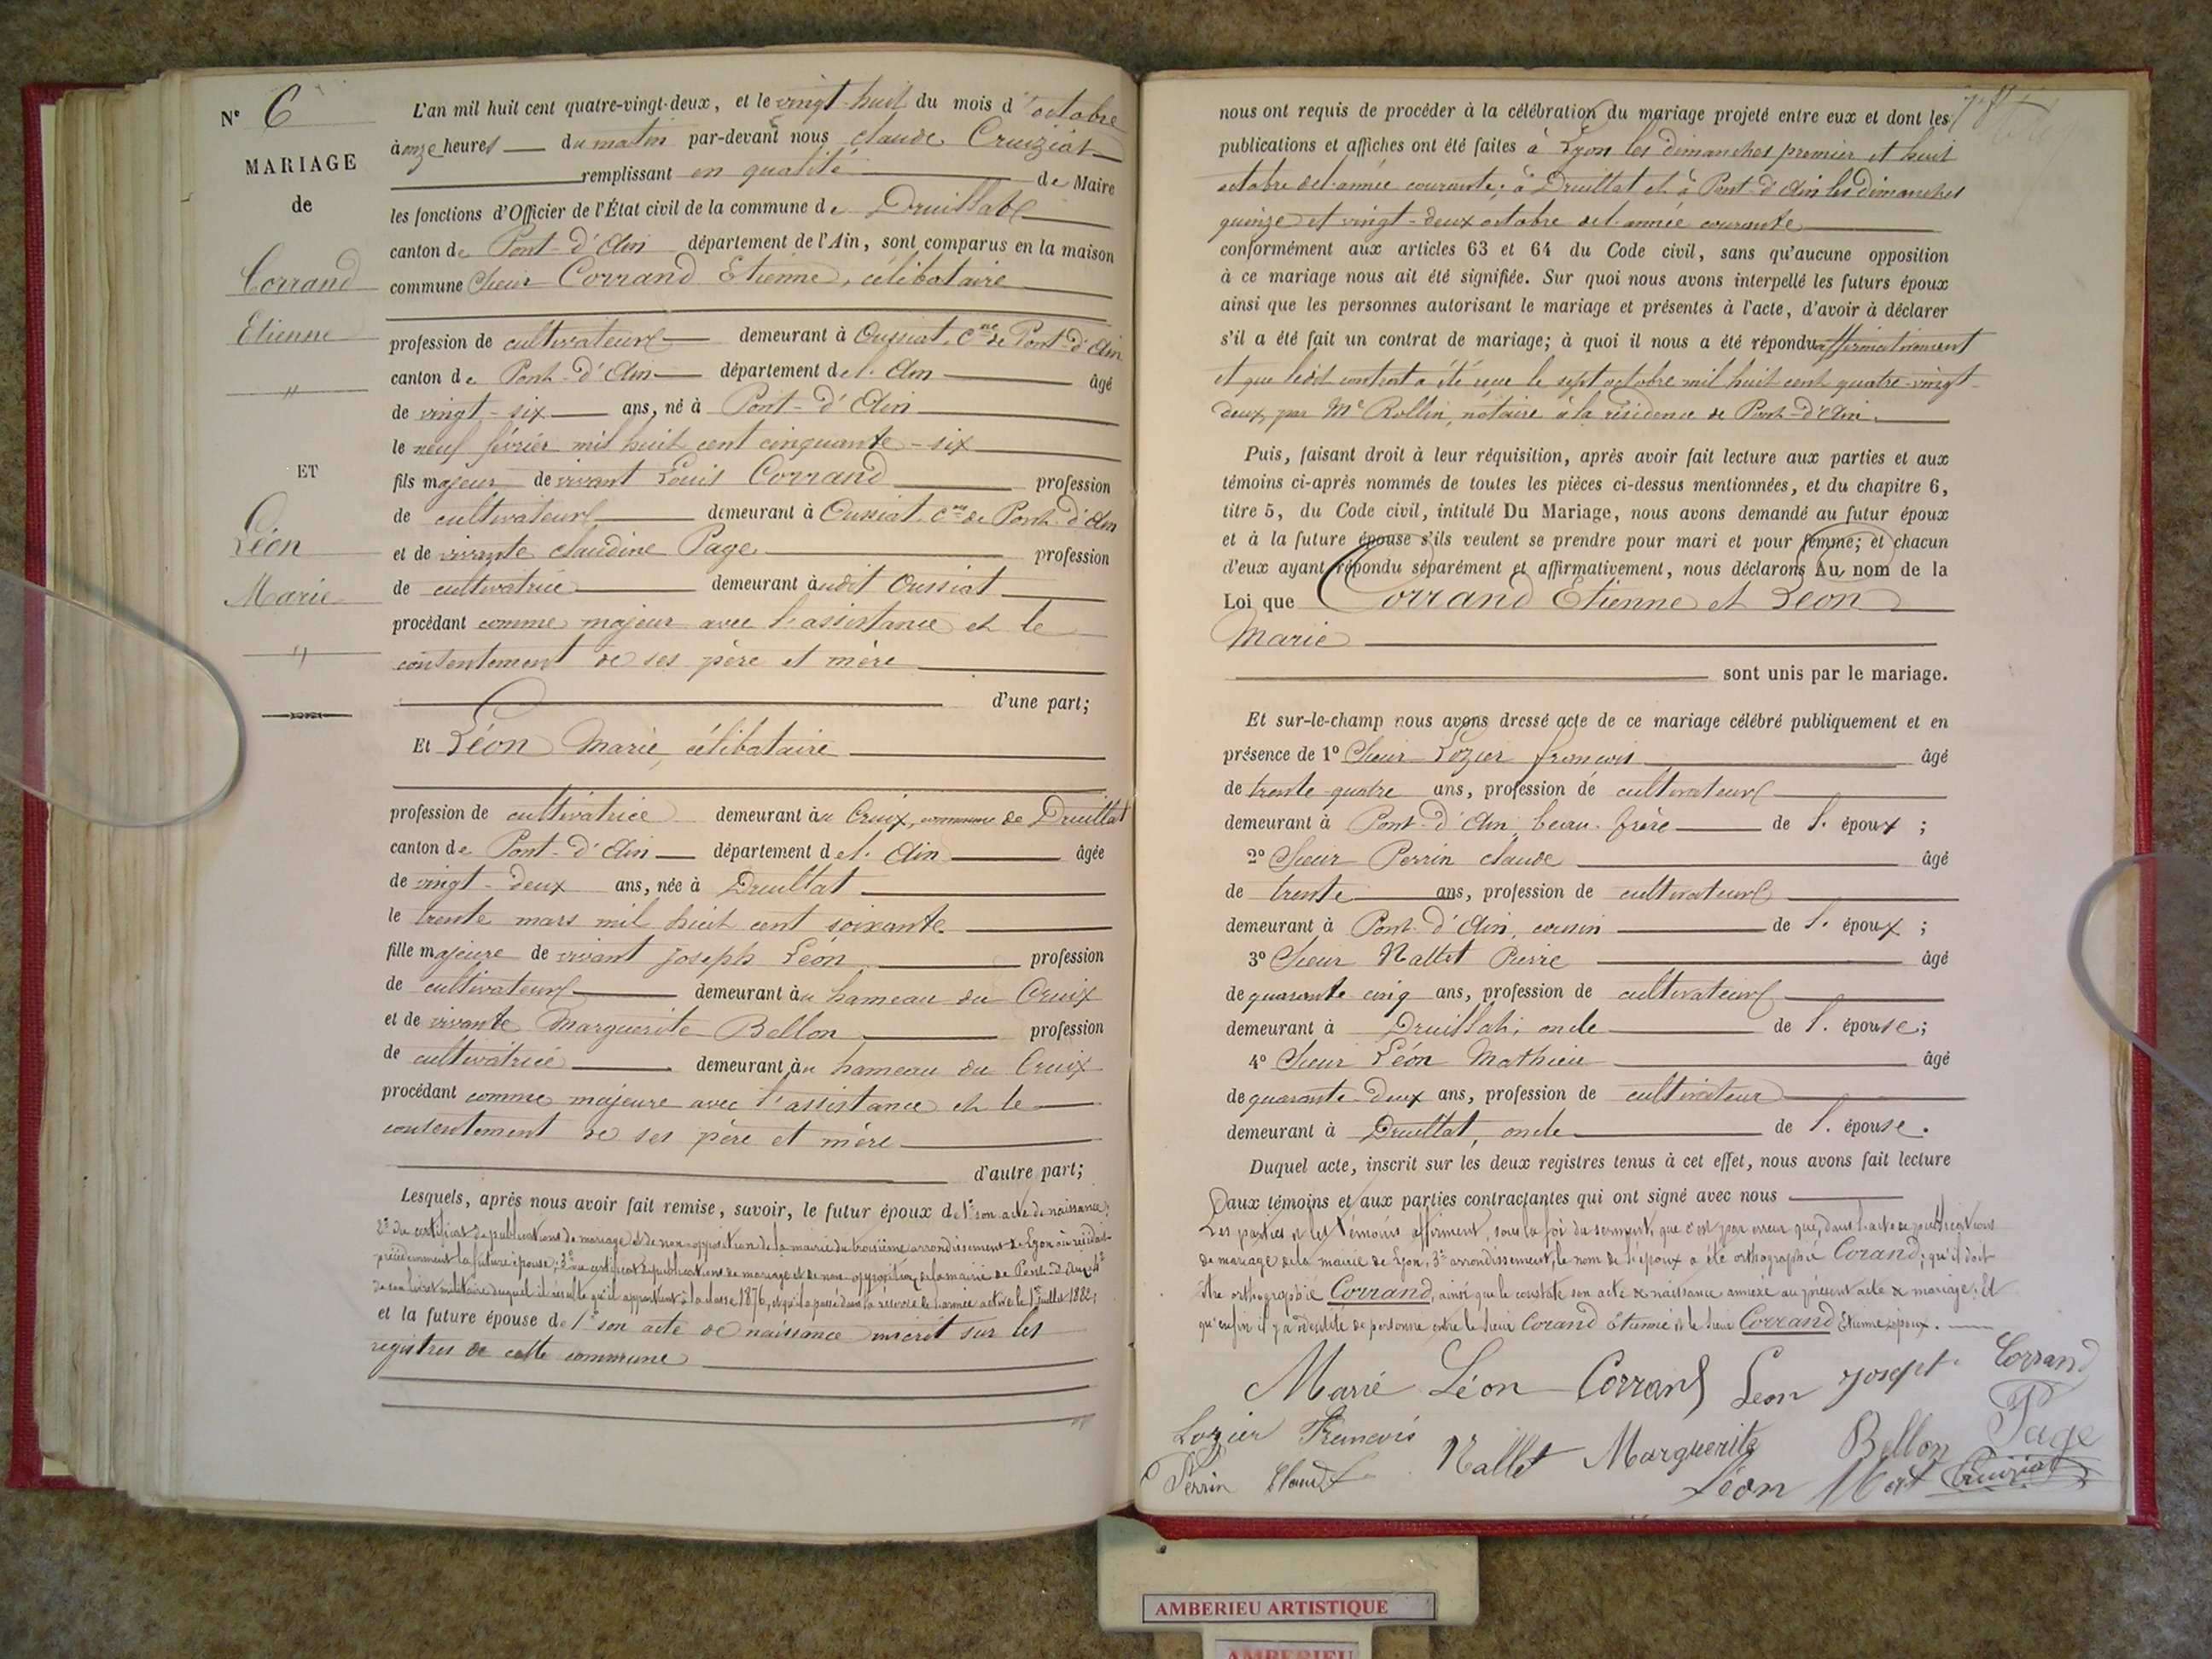 N° 6
MARIAGE
de
Corrand
Etienne
"
ET
Léon
Marie
"
L'an mil huit cent quatre-vingt-deux, et le vingt-huit du mois d'octobre
à onze heures du matin par-devant nous Claude Cruiziat
remplissant en qualité de Maire
les fonctions d'Officier de l'État civil de la commune de Druillat
canton de Pont-d'Ain département de l'Ain, sont comparus en la maison
commune Sieur Corrand Etienne, célibataire
profession de cultivateur demeurant à Oussiat, Cne de Pont-d'Ain
canton de Pont-d'Ain département de l'Ain âgé
de vingt-six ans, né à Pont-d'Ain
le neuf février mil huit cent cinquante-six
fils majeur de vivant Louis Corrand profession
de cultivateur demeurant à Oussiat, Cne de Pont-d'Ain
et de vivante Claudine Page profession
de cultivatrice demeurant audit Oussiat
procédant comme majeur avec l'assistance et le
consentement de ses père et mère
d'une part;
Et Léon Marie, célibataire
profession de cultivatrice demeurant au Cruix, commune de Druillat
canton de Pont-d'Ain département de l'Ain âgée
de vingt-deux ans, née à Druillat
le trente mars mil huit cent soixante
fille majeure de vivant Joseph Léon profession
de cultivateur demeurant au hameau du Cruix
et de vivante Marguerite Bellon profession
de cultivatrice demeurant au hameau du Cruix
procédant comme majeure avec l'assistance et le
consentement de ses père et mère
d'autre part;
Lesquels, après nous avoir fait remise, savoir, le futur époux de 1° son acte de naissance;
2° du certificat de publications de mariage et de non-opposition de la mairie du troisième arrondissement de Lyon où résidait
précédemment la future épouse; 3° du certificat de publications de mariage et de non-opposition de la mairie de Pont-d'Ain; 4°
de son livret militaire duquel il résulte qu'il appartient à la classe 1876, et qu'il a passé dans la réserve de l'armée active le 1er juillet 1882;
et la future épouse de 1° son acte de naissance inscrit sur les
registres de cette commune
nous ont requis de procéder à la célébration du mariage projeté entre eux et dont les
publications et affiches ont été faites à Lyon les dimanches premier et huit
octobre de l'année courante; à Druillat et à Pont-d'Ain les dimanches
quinze et vingt-deux octobre de l'année courante
conformément aux articles 63 et 64 du Code civil, sans qu'aucune opposition
à ce mariage nous ait été signifiée. Sur quoi nous avons interpellé les futurs époux
ainsi que les personnes autorisant le mariage et présentes à l'acte, d'avoir à déclarer
s'il a été fait un contrat de mariage; à quoi il nous a été répondu affirmativement
et que ledit contrat a été reçu le sept octobre mil huit cent quatre-vingt-
deux, par Me Rollin, notaire à la résidence de Pont-d'Ain.
Puis, faisant droit à leur réquisition, après avoir fait lecture aux parties et aux
témoins ci-après nommés de toutes les pièces ci-dessus mentionnées, et du chapitre 6,
titre 5, du Code civil, intitulé Du Mariage, nous avons demandé au futur époux
et à la future épouse s'ils veulent se prendre pour mari et pour femme; et chacun
d'eux ayant répondu séparément et affirmativement, nous déclarons Au nom de la
Loi que Corrand Etienne et Léon
Marie
sont unis par le mariage.
Et sur-le-champ nous avons dressé acte de ce mariage célébré publiquement et en
présence de 1° Sieur Lozier françois âgé
de trente-quatre ans, profession de cultivateur
demeurant à Pont-d'Ain, beau-frère de l'époux ;
2° Sieur Perrin Claude âgé
de trente ans, profession de cultivateur
demeurant à Pont-d'Ain, cousin de l'époux ;
3° Sieur Nallet Pierre âgé
de quarante cinq ans, profession de cultivateur
demeurant à Druillat, oncle de l'épouse;
4° Sieur Léon Mathieu âgé
de quarante-deux ans, profession de cultivateur
demeurant à Druillat, oncle de l'épouse.
Duquel acte, inscrit sur les deux registres tenus à cet effet, nous avons fait lecture
aux témoins et aux parties contractantes qui ont signé avec nous
Les parties et les témoins affirment, sous la foi du serment, que c'est par erreur que, dans l'acte de publications
de mariage de la mairie de Lyon, 3e arrondissement, le nom de l'époux a été orthographié Corand; qu'il doit
être orthographié Corrand, ainsi que le constate son acte de naissance annexé au présent acte de mariage. Et
qu'enfin il y a identité de personne entre le sieur Corand Etienne et le sieur Corrand Etienne époux.
Marie Léon Corrand Leon Joseph Corrand
Lozier Francois Nallet Marguerite Bellon Page
Perrin Claude Léon Mat Cruiziat
AMBERIEU ARTISTIQUE
AMBERIEU